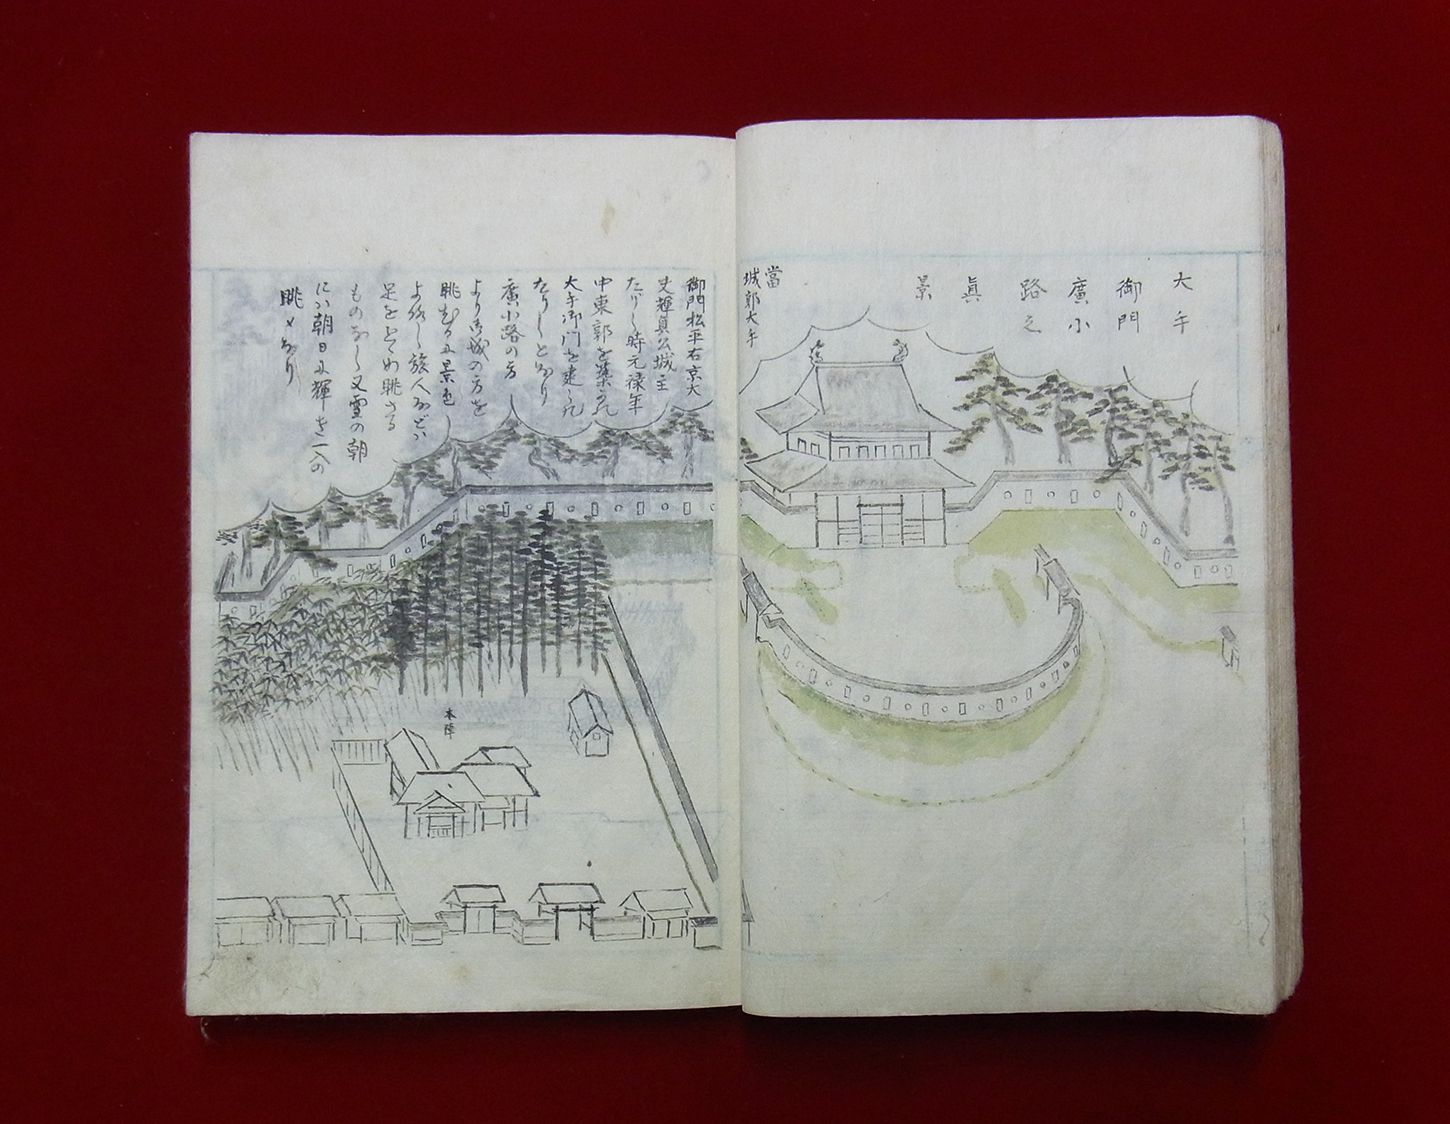 大手
御門
廣小
路之
眞
景
當
城郭大手
御門松平右京大
夫輝貞公城主
たりし時元禄年
中東郭を築かれ
大手御門を建られ
たりしとなり
廣小路の方
より御城の方を
眺むるに景色
よろし旅人などハ
足をとどめ眺さる
ものなし又雪の朝
にハ朝日に輝き一入の
眺メなり
本陣